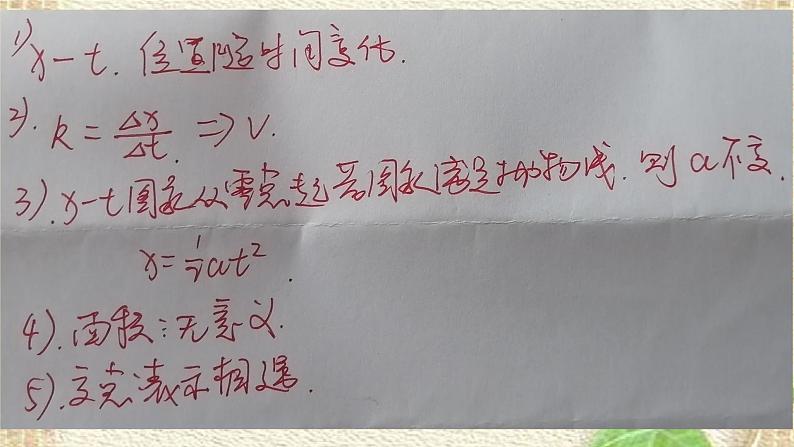 1) x-t. 位置随时间变化.
2). k = Δx/Δt. ⇒ V.
3). x-t图象从零点起若图象满足抛物线. 则a不变.
x = ½at².
4). 面积: 无意义.
5). 交点表示相遇.